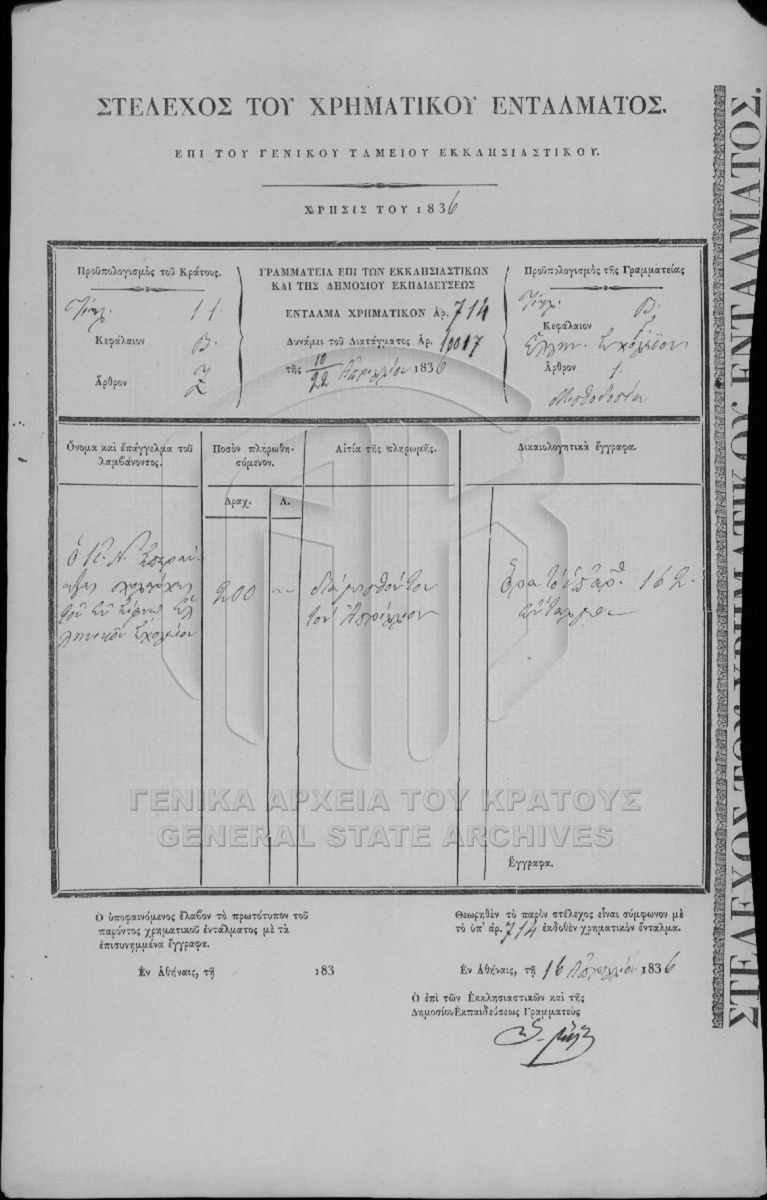 ΣΤΕΛΕΧΟΣ ΤΟΥ ΧΡΗΜΑΤΙΚΟΥ ΕΝΤΑΛΜΑΤΟΣ.
ΕΠΙ ΤΟΥ ΓΕΝΙΚΟΥ ΤΑΜΕΙΟΥ ΕΚΚΛΗΣΙΑΣΤΙΚΟΥ.
ΧΡΗΣΙΣ ΤΟΥ 1836
Προϋπολογισμὸς τοῦ Κράτους.
11.
Κεφάλαιον
Β.
Ἄρθρον
Ζ
ΓΡΑΜΜΑΤΕΙΑ ΕΠΙ ΤΩΝ ΕΚΚΛΗΣΙΑΣΤΙΚΩΝ
ΚΑΙ ΤΗΣ ΔΗΜΟΣΙΟΥ ΕΚΠΑΙΔΕΥΣΕΩΣ
ΕΝΤΑΛΜΑ ΧΡΗΜΑΤΙΚΟΝ Ἀρ. 714
Δυνάμει τοῦ Διατάγματος Ἀρ. 10017
τῆς 10/22 Ἀπριλλίου 1836
Προϋπολογισμὸς τῆς Γραμματείας
Β.
Κεφάλαιον
Ἑλλην. Σχολεῖον
Ἄρθρον 1.
Μισθοδοσία
Ὄνομα καὶ ἐπάγγελμα τοῦ
λαμβάνοντος.
Ποσὸν πληρωθη-
σόμενον.
Δραχ.
Λ.
Αἰτία τῆς πληρωμῆς.
Δικαιολογητικὰ ἔγγραφα.
σχολάρχης
τοῦ ἐν Σύρῳ Ἑλ
ληνικοῦ Σχολείου
200
διὰ μισθόν του
τοῦ Ἀπριλλίου
162.
ἔνταλμα
Ἔγγραφα.
Ὁ ὑποφαινόμενος ἔλαβον τὸ πρωτότυπον τοῦ
παρόντος χρηματικοῦ ἐντάλματος μὲ τὰ
ἐπισυνημμένα ἔγγραφα.
Ἐν Ἀθήναις, τῇ 183
Θεωρηθὲν τὸ παρὸν στέλεχος εἶναι σύμφωνον μὲ
τὸ ὑπ' ἀρ. 714 ἐκδοθὲν χρηματικὸν ἔνταλμα.
Ἐν Ἀθήναις, τῇ 16 Ἀπριλλίου 1836
Ὁ ἐπὶ τῶν Ἐκκλησιαστικῶν καὶ τῆς
Δημοσίου Ἐκπαιδεύσεως Γραμματεὺς
ΣΤΕΛΕΧΟΣ ΤΟΥ ΧΡΗΜΑΤΙΚΟΥ ΕΝΤΑΛΜΑΤΟΣ.
ΓΕΝΙΚΑ ΑΡΧΕΙΑ ΤΟΥ ΚΡΑΤΟΥΣ
GENERAL STATE ARCHIVES